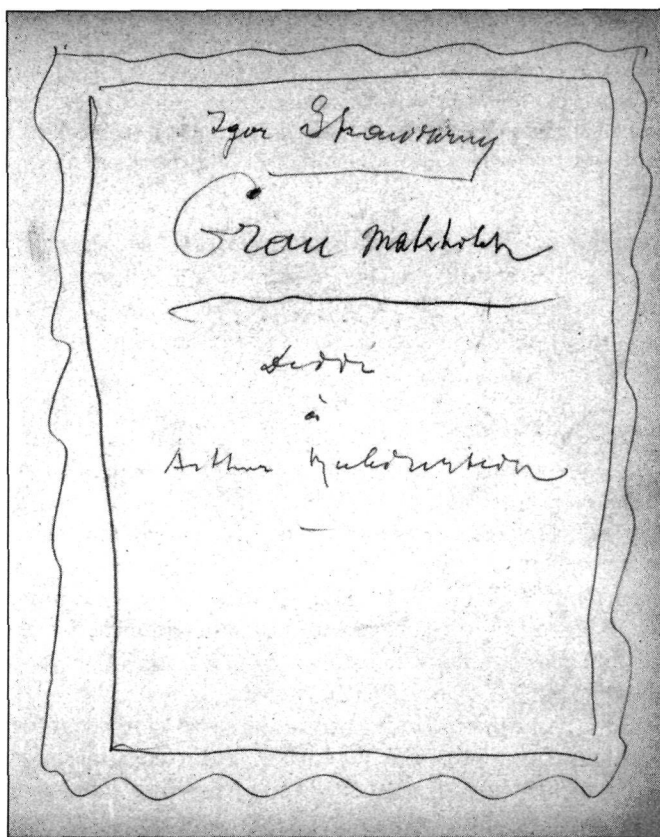 Igor Strawinsky
Gran
Dédié
à
Arthur Rubinstein